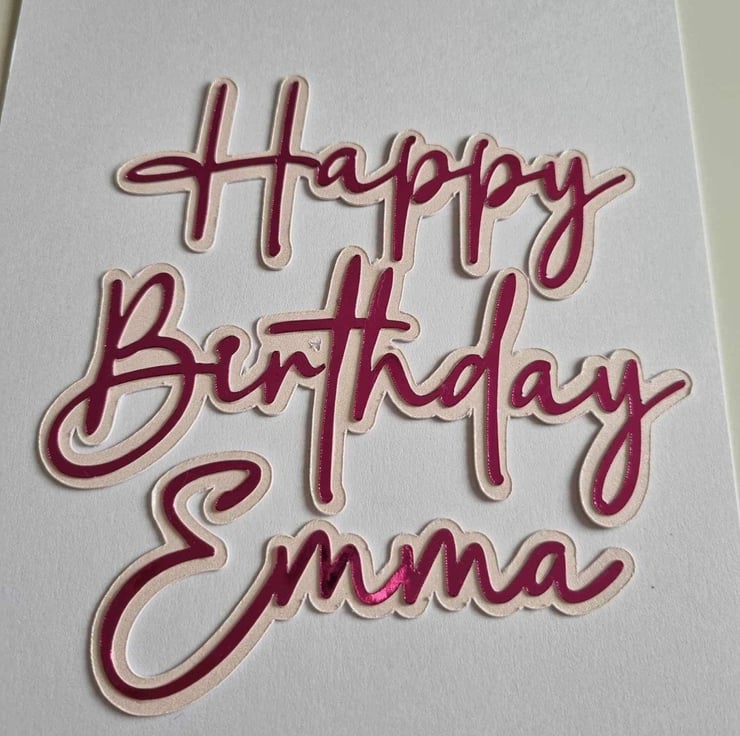 Happy
Birthday
Emma